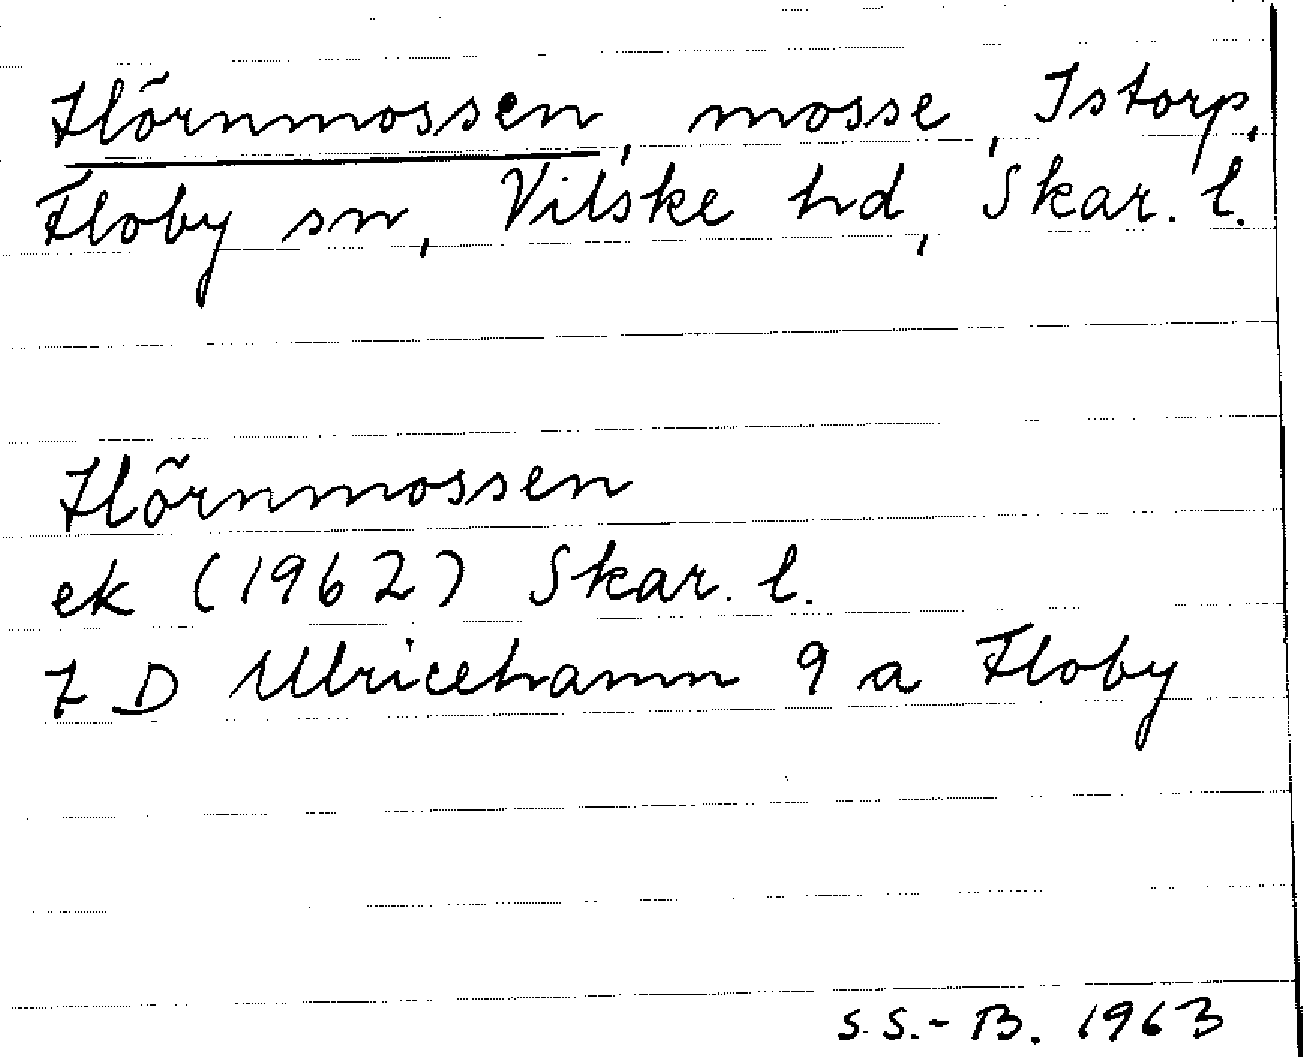 Hörnmossen, mosse, Istorp,
Floby sn, Vilske hd, Skar. l.
Hörnmossen
ek (1962) Skar. l.
7 D Ulricehamn 9 a Floby
S.S.-B. 1963